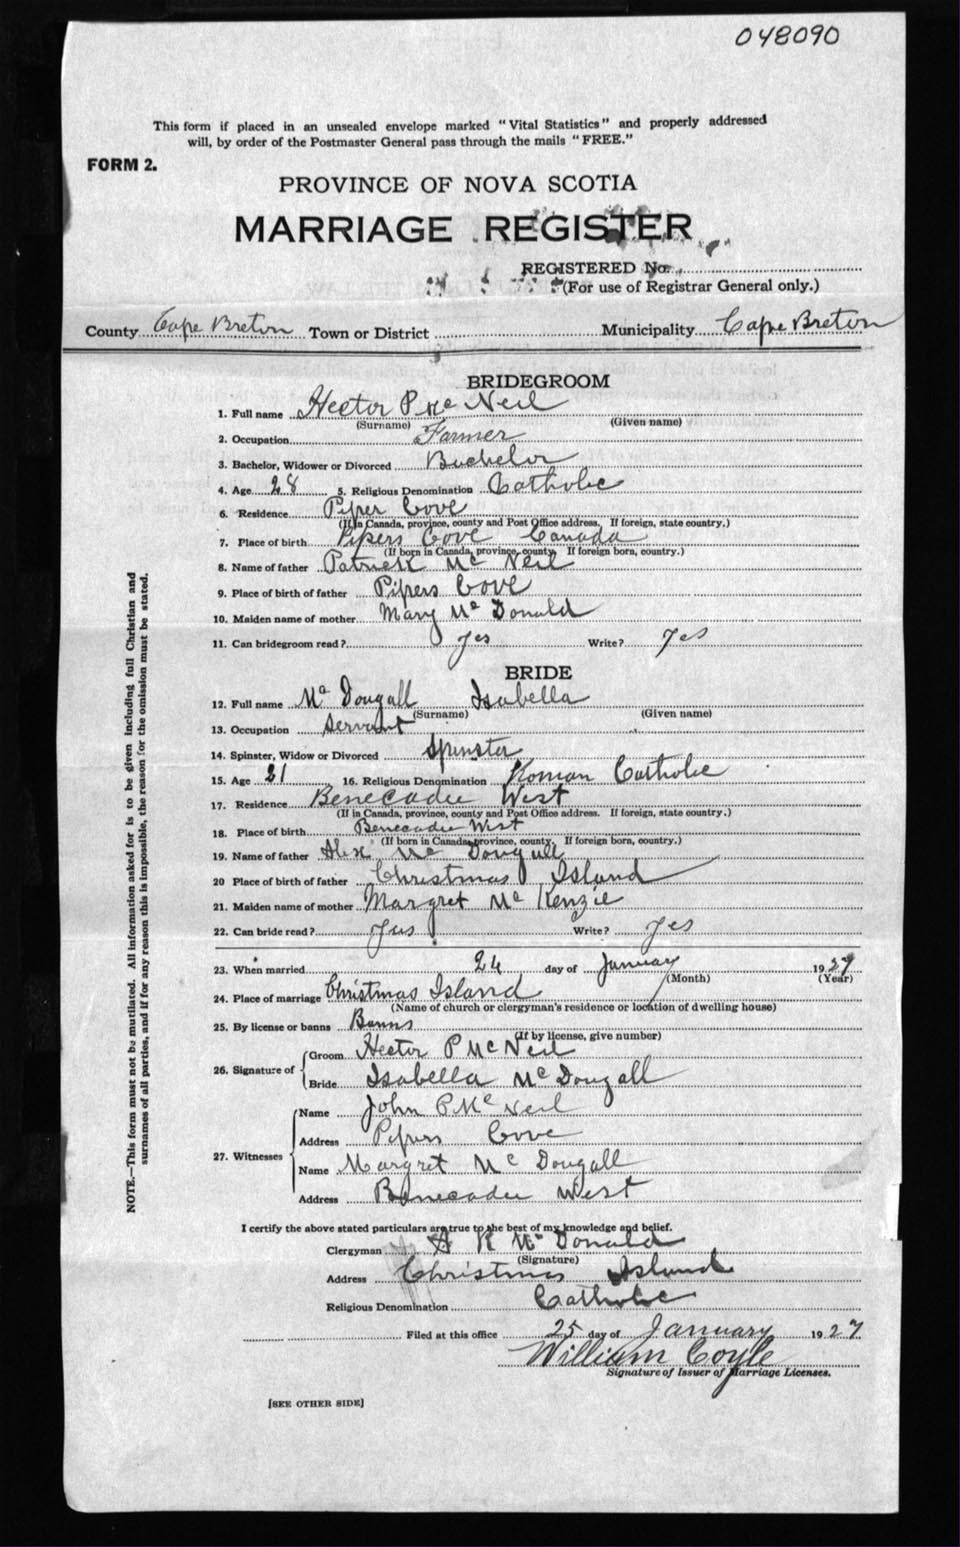 048090
This form if placed in an unsealed envelope marked "Vital Statistics" and properly addressed
will, by order of the Postmaster General pass through the mails "FREE."
FORM 2.
PROVINCE OF NOVA SCOTIA
MARRIAGE REGISTER
REGISTERED No.
(For use of Registrar General only.)
County Cape Breton Town or District Municipality Cape Breton
BRIDEGROOM
1. Full name Hector P Mc Neil
(Surname) (Given name)
2. Occupation Farmer
3. Bachelor, Widower or Divorced Bachelor
4. Age 28 5. Religious Denomination Catholic
6. Residence Piper Cove
(If in Canada, province, county and Post Office address. If foreign, state country.)
7. Place of birth Pipers Cove Canada
(If born in Canada, province, county. If foreign born, country.)
8. Name of father Patrick Mc Neil
9. Place of birth of father Pipers Cove
10. Maiden name of mother Mary Mc Donald
11. Can bridegroom read? yes Write? yes
BRIDE
12. Full name Mc Dougall Isabella
(Surname) (Given name)
13. Occupation Servant
14. Spinster, Widow or Divorced Spinster
15. Age 21 16. Religious Denomination Roman Catholic
17. Residence Benecadie West
(If in Canada, province, county and Post Office address. If foreign, state country.)
18. Place of birth Benecadie West
(If born in Canada, province, county. If foreign born, country.)
19. Name of father Alex Mc Dougall
20 Place of birth of father Christmas Island
21. Maiden name of mother Margret Mc Kenzie
22. Can bride read? Yes Write? Yes
23. When married 24 day of January 1927
(Month) (Year)
24. Place of marriage Christmas Island
(Name of church or clergyman's residence or location of dwelling house)
25. By license or banns Banns
(If by license, give number)
26. Signature of Groom Hector P Mc Neil
Bride Isabella Mc Dougall
27. Witnesses Name John P Mc Neil
Address Pipers Cove
Name Margret Mc Dougall
Address Benecadie West
I certify the above stated particulars are true to the best of my knowledge and belief.
Clergyman A R Mc Donald
(Signature)
Address Christmas Island
Religious Denomination Catholic
Filed at this office 25 day of January 1927
William Coyle
Signature of Issuer of Marriage Licenses.
[SEE OTHER SIDE]
NOTE.—This form must not be mutilated. All information asked for is to be given including full Christian and
surnames of all parties, and if for any reason this is impossible, the reason for the omission must be stated.